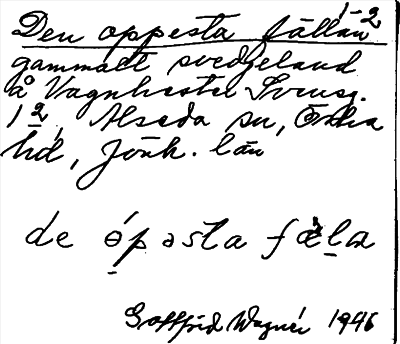 Den oppesta fällan 1-2
gammalt svedjeland
å Vagnhester Svensg.
1 2, Alseda sn, Östra
hd, Jönk. län
de ópəsta fæ̀lan
Gottfrid Wagnér 1946